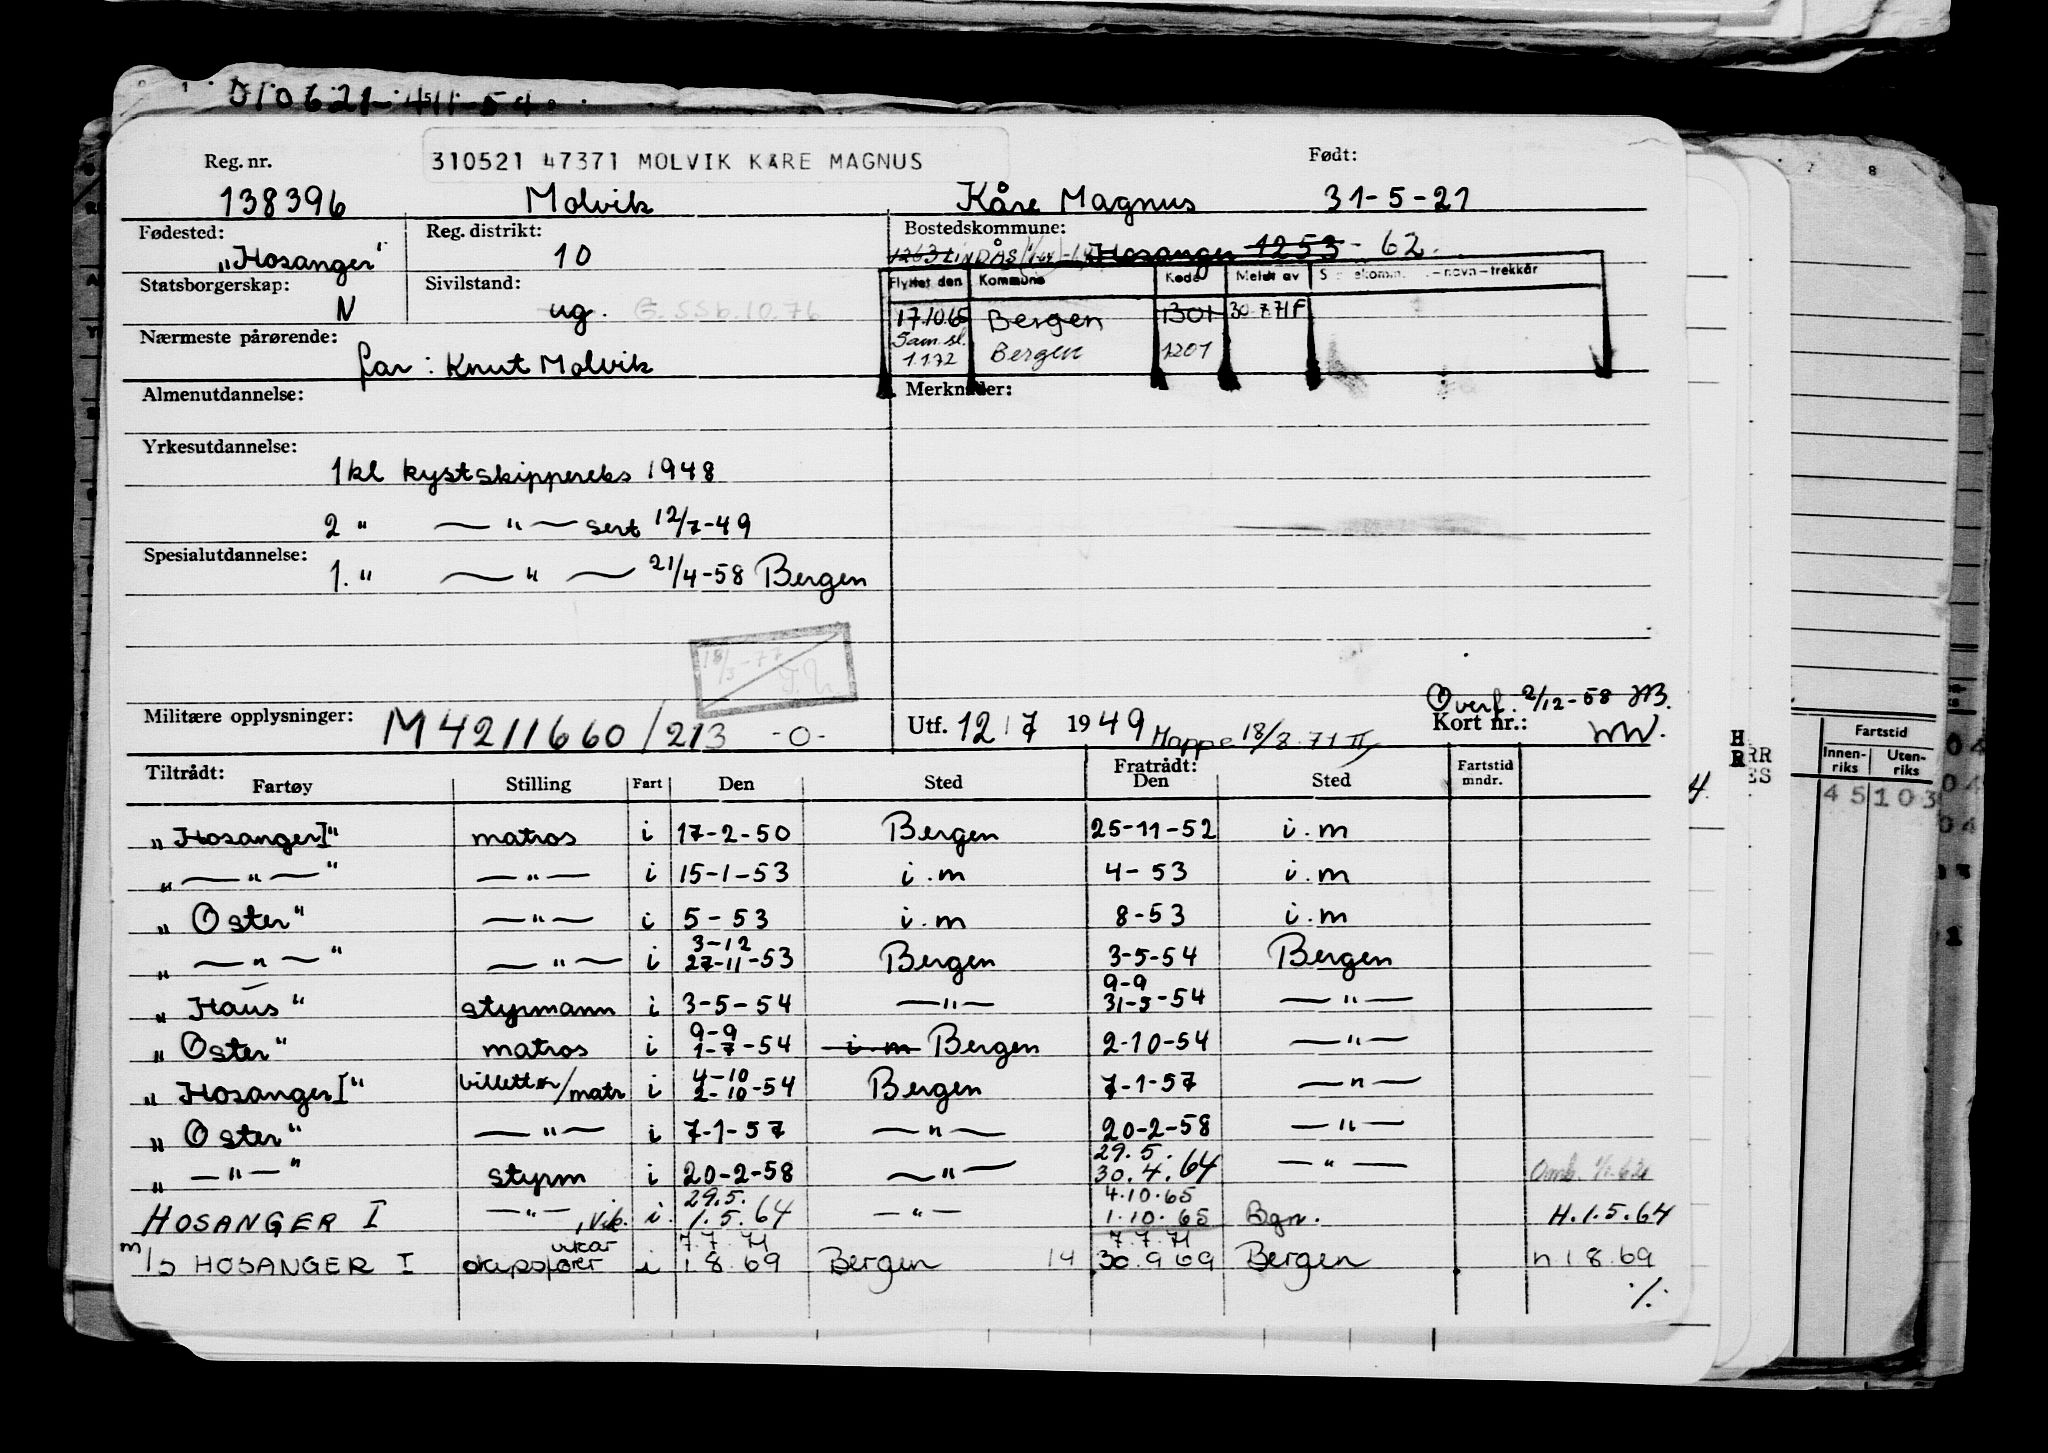 010621-411-54
Reg. nr. 310521 47371 MOLVIK KÅRE MAGNUS Født:
138396 Molvik Kåre Magnus 31-5-21
Fødested: Reg. distrikt: Bostedskommune:
„Hosanger" 10 1263 LINDÅS Hosanger 1253 - 62.
Statsborgerskap: Sivilstand: Flyttet den Kommune Kode Meldt av - navn - trekkår
N ug. G. SSb. 10.76 17.10.65 Bergen 1301 30 7 71 F
Nærmeste pårørende: Sam. sl.
far: Knut Molvik 1.1.72 Bergen 1201
Almenutdannelse: Merknader:
Yrkesutdannelse:
1 kl kystskippereks 1948
2 " — " — sert 12/7-49
Spesialutdannelse:
1. " — " — 21/4-58 Bergen
18/3-77
Overf. 2/12-58
Militære opplysninger: M 4211660/213 -0- Utf. 12 / 7 1949 Mappe 18/8.71 Kort nr.:
Tiltrådt: Fratrådt: Fartstid
Fartøy Stilling Fart Den Sted Den Sted mndr.
„Hosanger I" matros i 17-2-50 Bergen 25-11-52 i.m
„ — " — " — " — i 15-1-53 i.m 4-53 i.m
„ Oster" — " — i 5-53 i.m 8-53 i.m
3-12
„ — " — " — " — i 27-11-53 Bergen 3-5-54 Bergen
9-9
„ Haus" styrmann i 3-5-54 — " — 31-5-54 — " —
9-9
„ Oster" matros i 1-7-54 i m Bergen 2-10-54 — " —
4-10
„ Hosanger I" billettør/matr i 2-10-54 Bergen 7-1-57 — " —
„ Oster" — " — i 7-1-57 — " — 20-2-58 — " —
29.5.
„ — " — " styrm i 20-2-58 — " — 30.4.64 — " —
29.5. 4.10.65
HOSANGER I — " —, vik. i. 1.5.64 — " — 1.10.65 Bgn. H.1.5.64
vikar 7.7.71 7.7.71
m/s HOSANGER I skipsfører i 1 8.69 Bergen 14 30.9 69 Bergen h 1 8.69
./.
Fartstid
Innen-riks Uten-riks
45 103